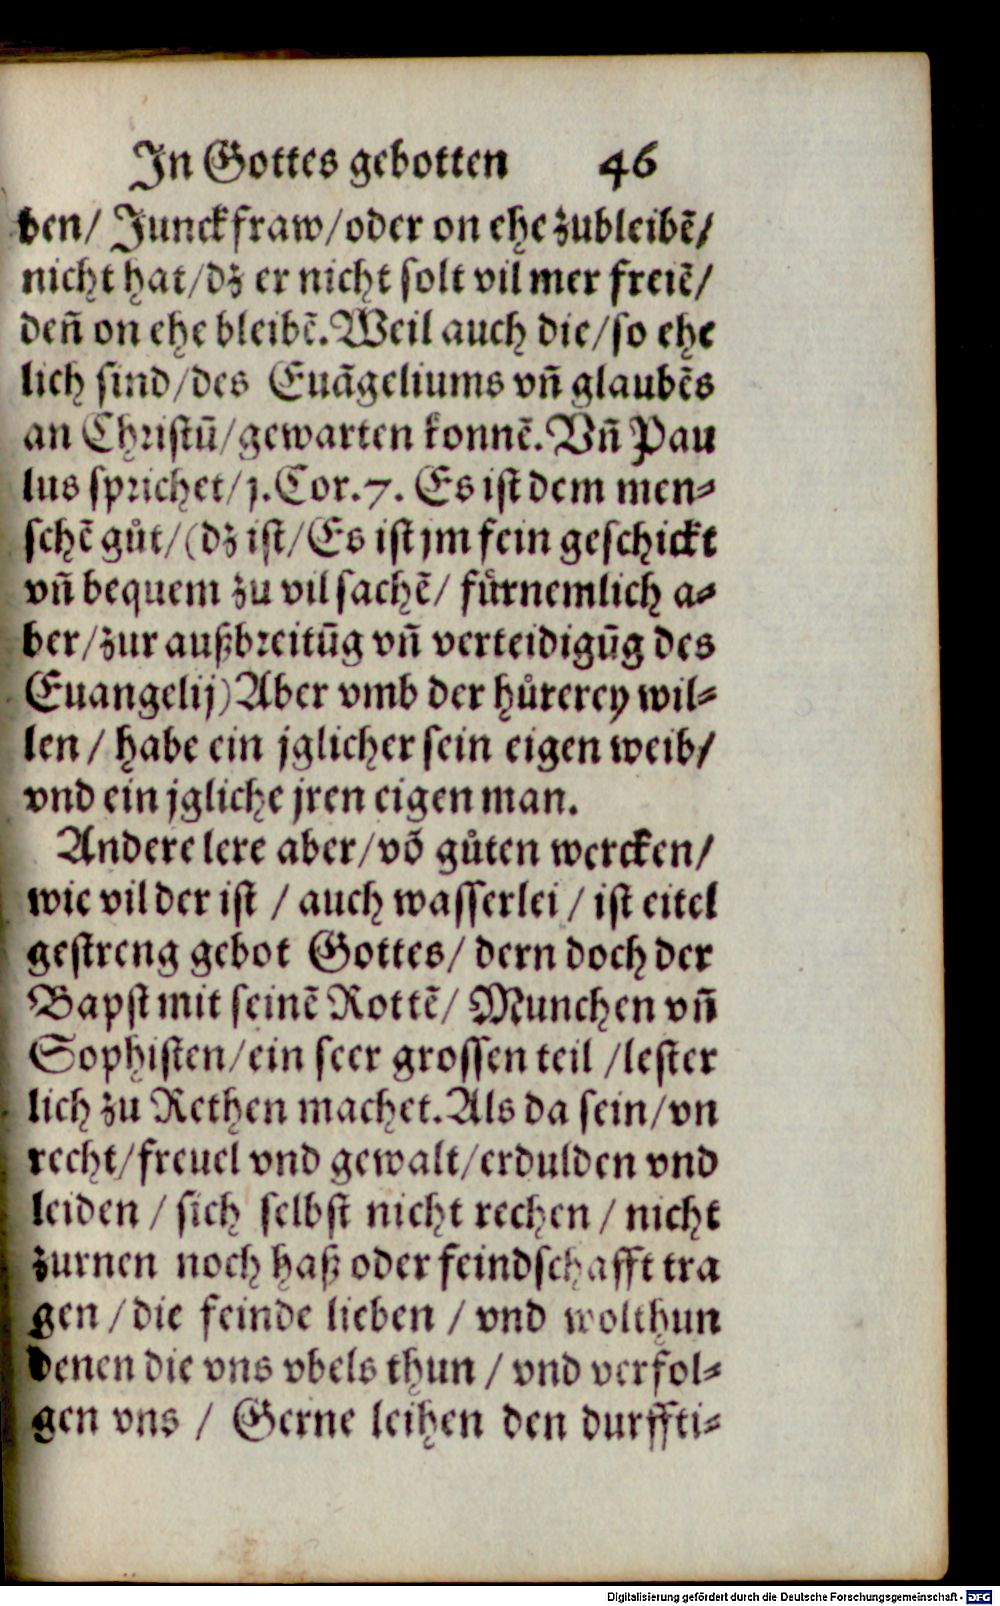 In Gottes gebotten 46
ben/ Junckfraw/oder on ehe zubleibẽ/
nicht hat/dz er nicht solt vil mer freiẽ/
deñ on ehe bleibẽ. Weil auch die/so ehe
lich sind/des Euãgeliums vñ glaubẽs
an Christũ/gewarten konnẽ. Vñ Pau
lus sprichet/j. Cor. 7. Es ist dem men-
schẽ gůt/(dz ist/Es ist jm fein geschickt
vñ bequem zu vil sachẽ/ fürnemlich a-
ber/zur außbreitũg vñ verteidigũg des
Euangelij) Aber vmb der hůrerey wil-
len / habe ein jglicher sein eigen weib/
vnd ein jgliche jren eigen man.
Andere lere aber/võ gůten wercken/
wie vil der ist / auch wasserlei / ist eitel
gestreng gebot Gottes/ dern doch der
Bapst mit seinẽ Rottẽ/ Munchen vñ
Sophisten/ein seer grossen teil /lester
lich zu Rethen machet. Als da sein/vn
recht/freuel vnd gewalt/erdulden vnd
leiden / sich selbst nicht rechen / nicht
zurnen noch haß oder feindschafft tra
gen / die feinde lieben / vnd wolthun
denen die vns vbels thun / vnd verfol-
gen vns / Gerne leihen den durffti-
Digitalisierung gefördert durch die Deutsche Forschungsgemeinschaft - DFG